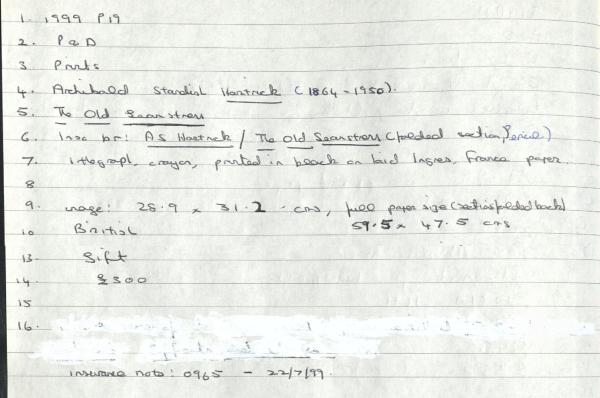 1. 1999 P19
2. P & D
3 Prints
4. Archibald Standish Hartrick (1864-1950).
5. The Old Seamstress
6. Insc br: AS Hartrick / The Old Seamstress (folded section, Pencil)
7. lithograph, crayon, printed in black on laid Ingres, France paper.
8
9. image: 28.9 x 31.2 cms, full paper size (sections folded back)
59.5 x 47.5 cms
10 British
13 Gift
14. £300
15
16.
insurance note: 0965 - 22/7/99.